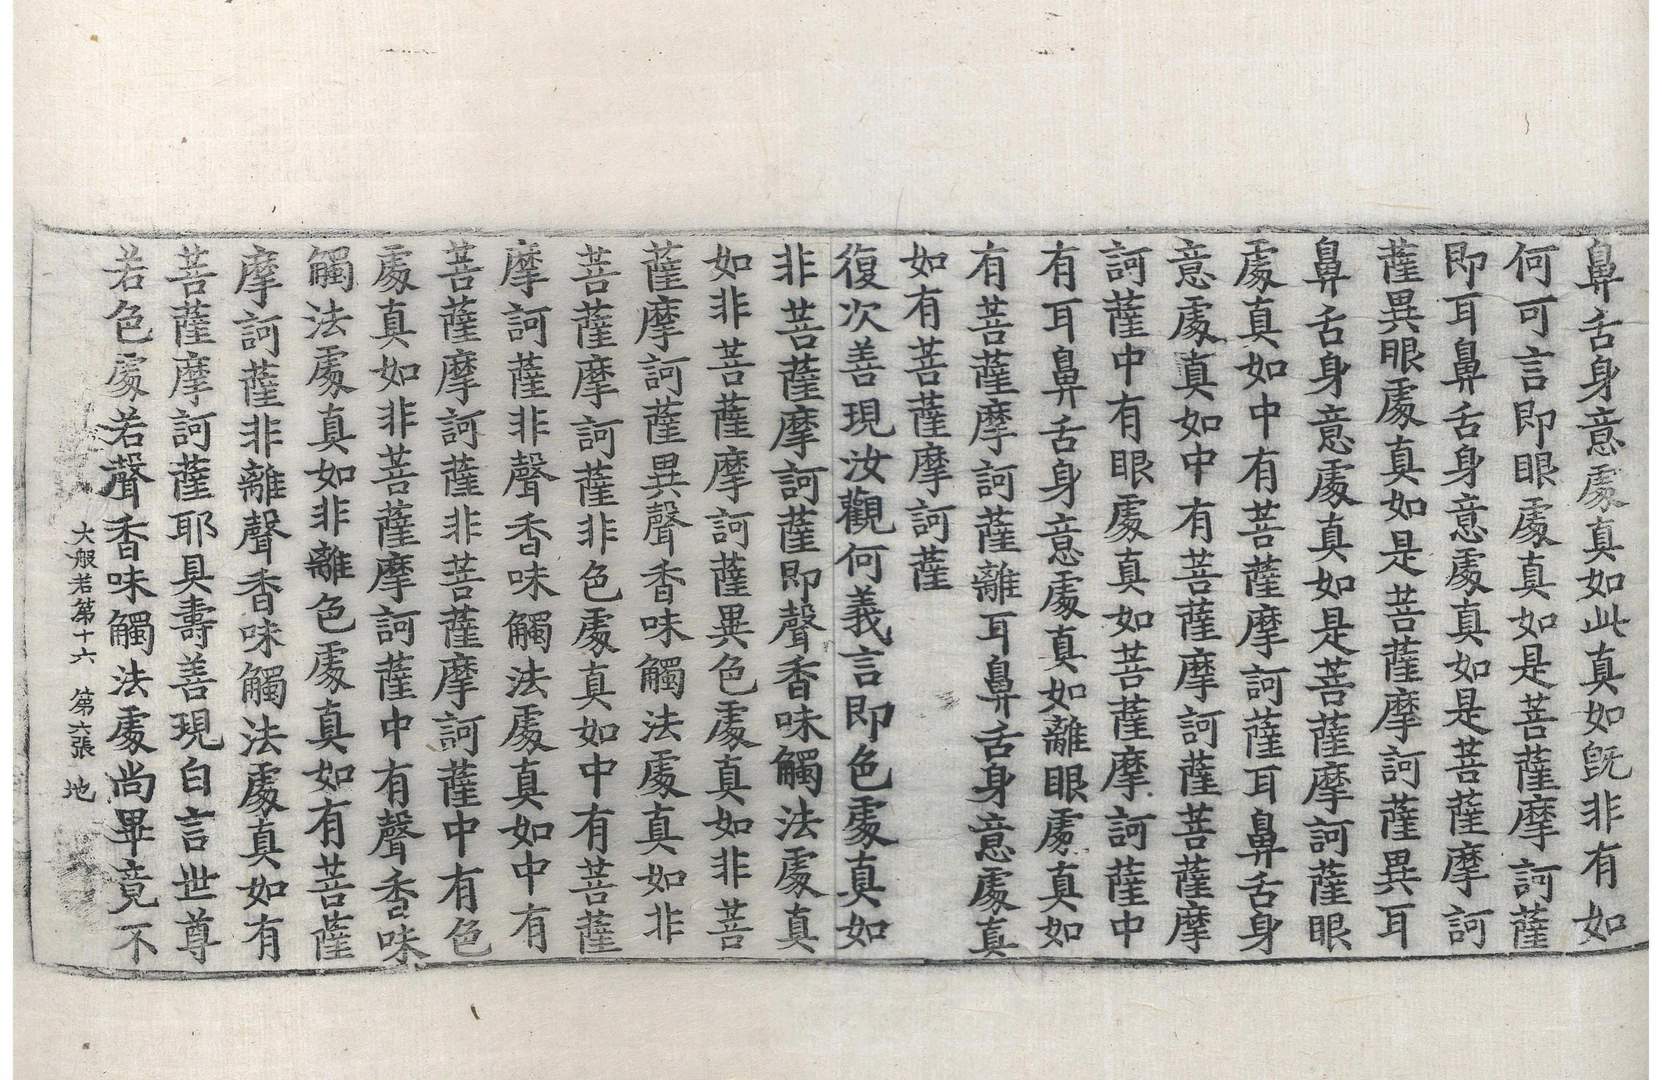 鼻舌身意處真如此真如旣非有如
何可言即眼處真如是菩薩摩訶薩
即耳鼻舌身意處真如是菩薩摩訶
薩異眼處真如是菩薩摩訶薩異耳
鼻舌身意處真如是菩薩摩訶薩眼
處真如中有菩薩摩訶薩耳鼻舌身
意處真如中有菩薩摩訶薩菩薩摩
訶薩中有眼處真如菩薩摩訶薩中
有耳鼻舌身意處真如離眼處真如
有菩薩摩訶薩離耳鼻舌身意處真
如有菩薩摩訶薩
復次善現汝觀何義言即色處真如
非菩薩摩訶薩即聲香味觸法處真
如非菩薩摩訶薩異色處真如非菩
薩摩訶薩異聲香味觸法處真如非
菩薩摩訶薩非色處真如中有菩薩
摩訶薩非聲香味觸法處真如中有
菩薩摩訶薩非菩薩摩訶薩中有色
處真如非菩薩摩訶薩中有聲香味
觸法處真如非離色處真如有菩薩
摩訶薩非離聲香味觸法處真如有
菩薩摩訶薩耶具壽善現白言世尊
若色處若聲香味觸法處尚畢竟不
大般若第十六 第六張 地